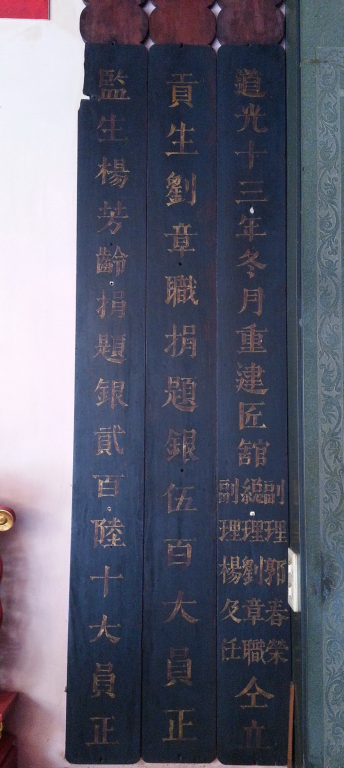 道光十三年冬月重建匠館
副理郭春榮
總理劉章職
副理楊及任
仝立
貢生劉章職捐題銀伍百大員正
監生楊芳齡捐題銀貳百陸十大員正